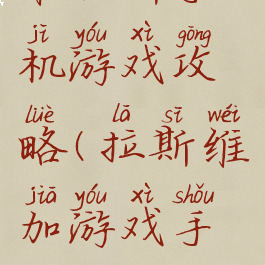 jī yóu xì gōng
机游戏攻
lüè lā sī wéi
略(拉斯维
jiā yóu xì shǒu
加游戏手